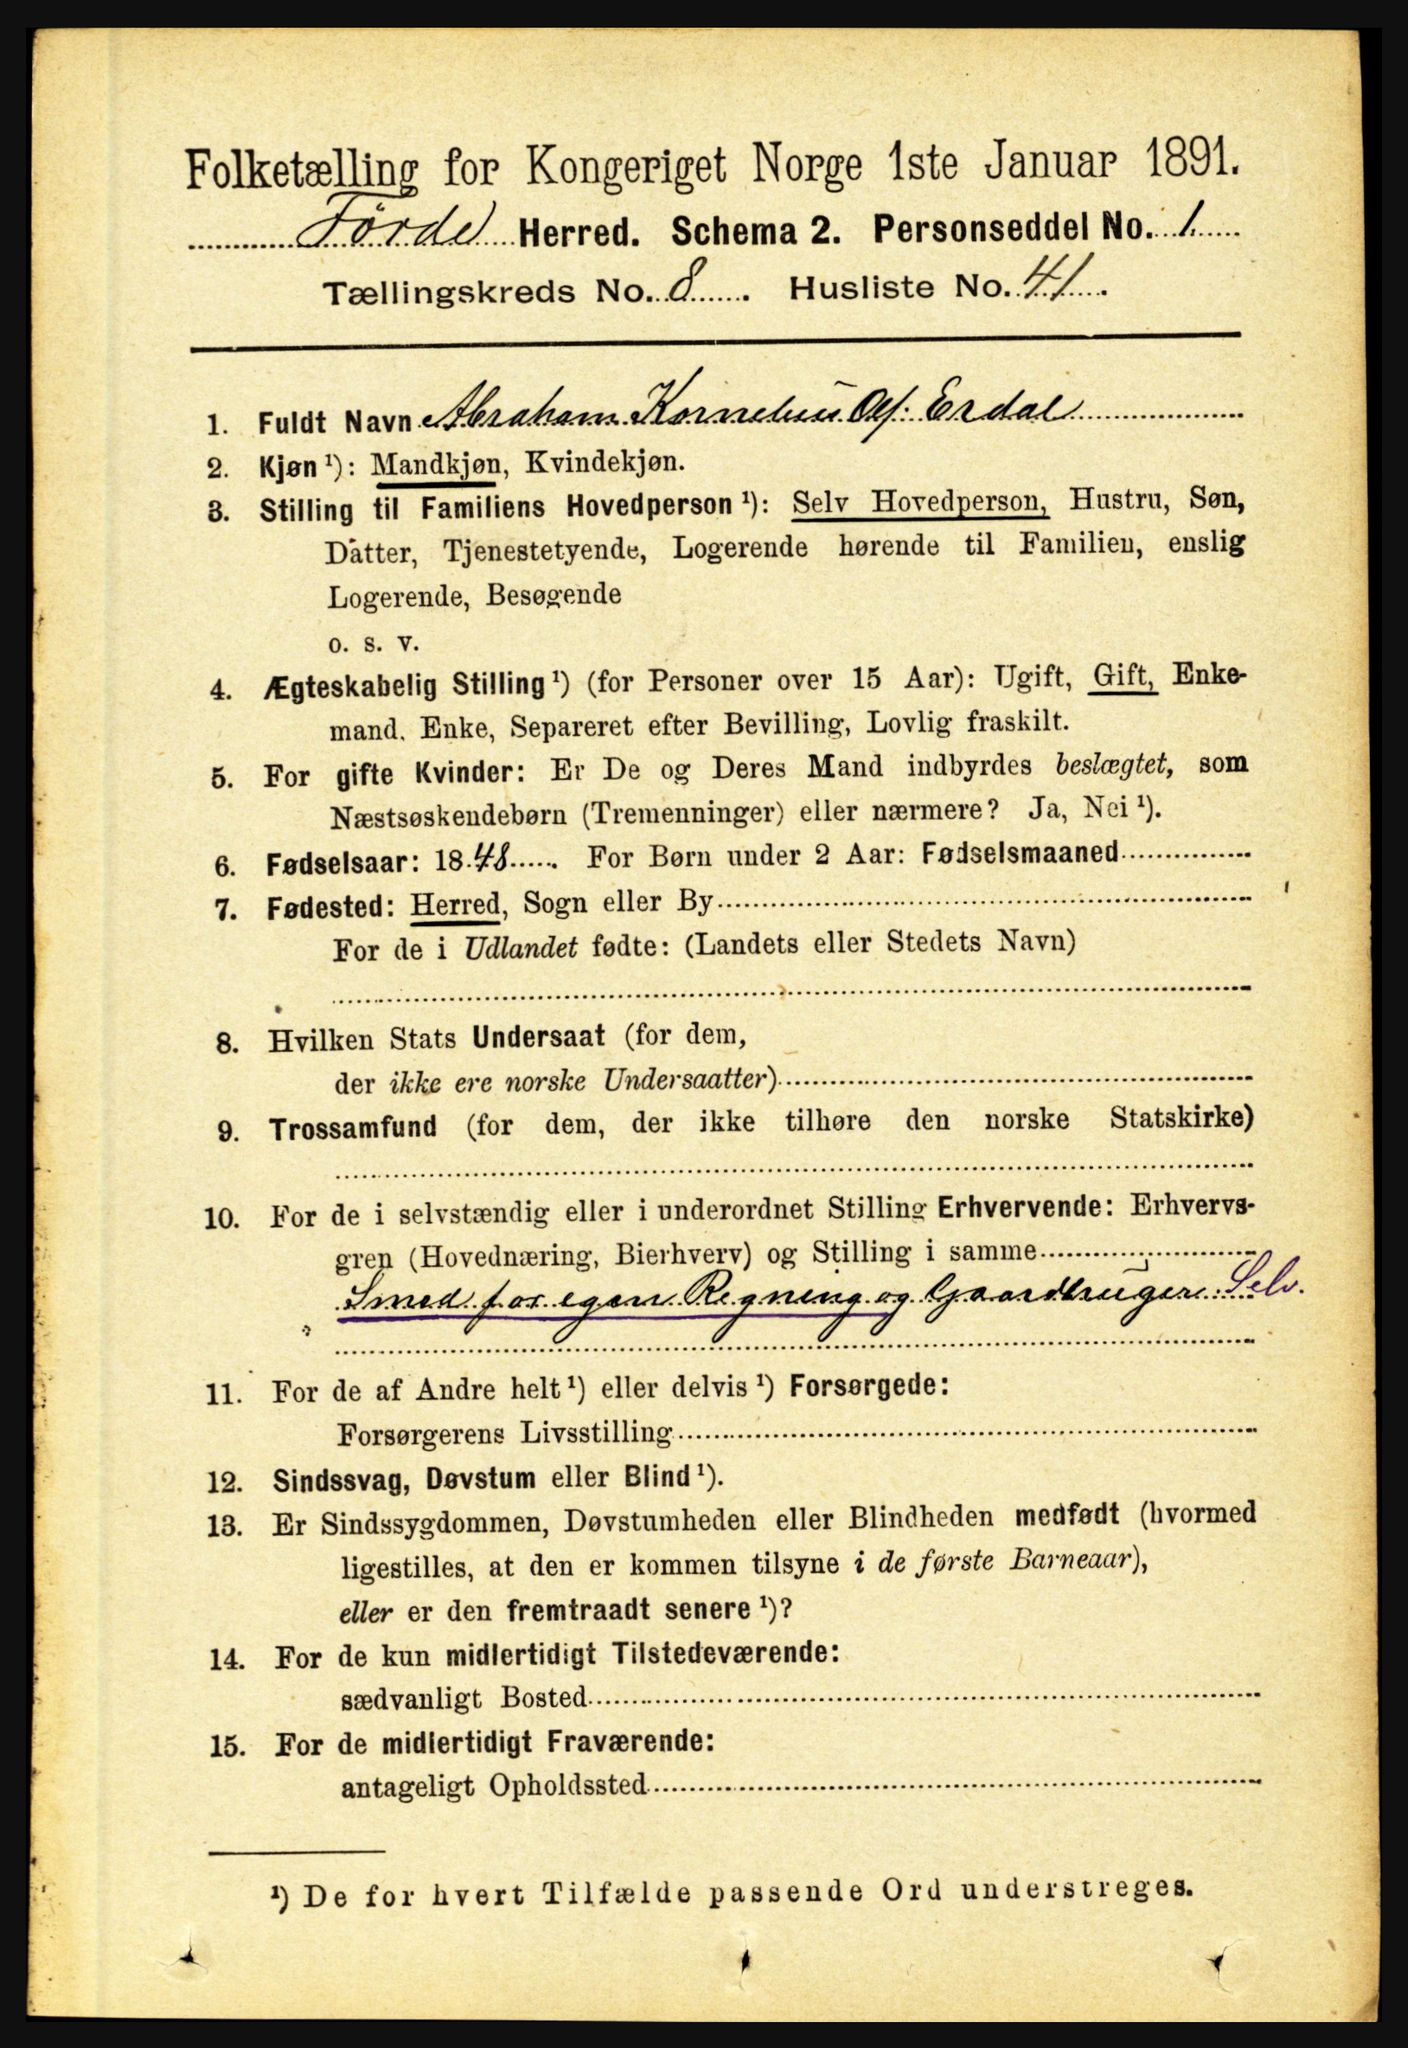 Folketælling for Kongeriget Norge 1ste Januar 1891.
Førde Herred. Schema 2. Personseddel No. 1
Tællingskreds No. 8. Husliste No. 41.
1. Fuldt Navn Abraham Kornelius Ols: Erdal
2. Kjøn ¹): Mandkjøn, Kvindekjøn.
3. Stilling til Familiens Hovedperson ¹): Selv Hovedperson, Hustru, Søn,
Datter, Tjenestetyende, Logerende hørende til Familien, enslig
Logerende, Besøgende
o. s. v.
4. Ægteskabelig Stilling ¹) (for Personer over 15 Aar): Ugift, Gift, Enke-
mand. Enke, Separeret efter Bevilling, Lovlig fraskilt.
5. For gifte Kvinder: Er De og Deres Mand indbyrdes beslægtet, som
Næstsøskendebørn (Tremenninger) eller nærmere? Ja, Nei ¹).
6. Fødselsaar: 1848. For Børn under 2 Aar: Fødselsmaaned
7. Fødested: Herred, Sogn eller By
For de i Udlandet fødte: (Landets eller Stedets Navn)
8. Hvilken Stats Undersaat (for dem,
der ikke ere norske Undersaatter)
9. Trossamfund (for dem, der ikke tilhøre den norske Statskirke)
10. For de i selvstændig eller i underordnet Stilling Erhvervende: Erhvervs-
gren (Hovednæring, Bierhverv) og Stilling i samme
Smed for egen Regning og Gaardbruger. Selv.
11. For de af Andre helt ¹) eller delvis ¹) Forsørgede:
Forsørgerens Livsstilling
12. Sindssvag, Døvstum eller Blind ¹).
13. Er Sindssygdommen, Døvstumheden eller Blindheden medfødt (hvormed
ligestilles, at den er kommen tilsyne i de første Barneaar),
eller er den fremtraadt senere ¹)?
14. For de kun midlertidigt Tilstedeværende:
sædvanligt Bosted
15. For de midlertidigt Fraværende:
antageligt Opholdssted
¹) De for hvert Tilfælde passende Ord understreges.